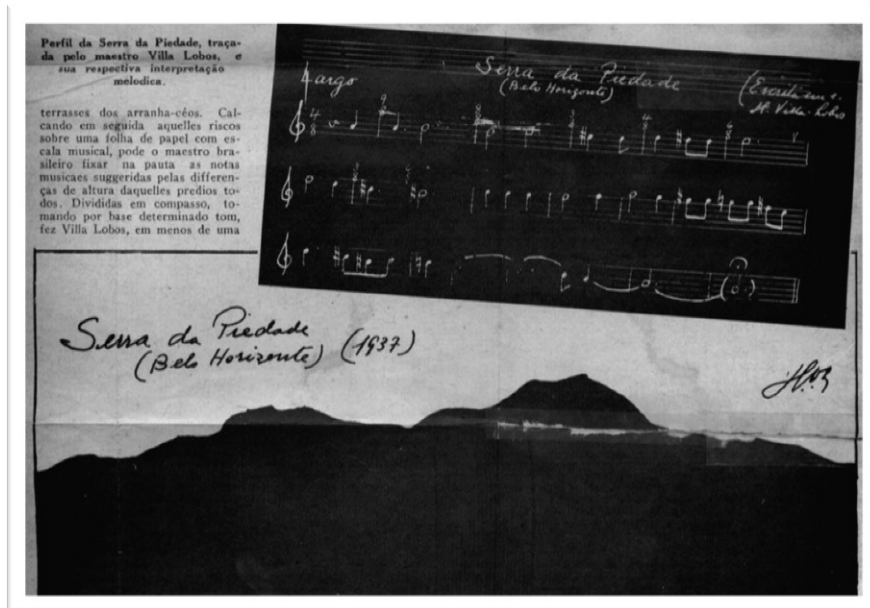 Perfil da Serra da Piedade, traça-
da pelo maestro Villa Lobos, e
sua respectiva interpretação
melodica.
terrasses dos arranha-céos. Cal-
cando em seguida aquelles riscos
sobre uma folha de papel com es-
cala musical, pode o maestro bra-
sileiro fixar na pauta as notas
musicaes suggeridas pelas differen-
ças de altura daquelles predios to-
dos. Divididas em compasso, to-
mando por base determinado tom,
fez Villa Lobos, em menos de uma
Largo
Serra da Piedade
(Belo Horizonte)
H. Villa-Lobos
Serra da Piedade
(Belo Horizonte) (1937)